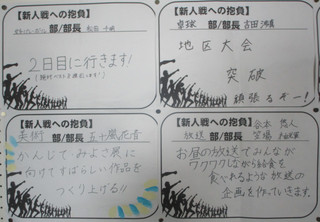 【新人戦への抱負】
部/部長
2日目に行きます!
【新人戦への抱負】
卓球 部/部長 吉田
地区大会
突破
頑張るぞー!
【新人戦への抱負】
美術 部/部長 五十嵐
かんじて・みよさ展に
向けてすばらしい作品を
つくり上げる!!
【新人戦への抱負】
放送 部/部長
お昼の放送でみんなが
ワクワクしながら給食を
食べれるような放送の
企画を作っていきます。